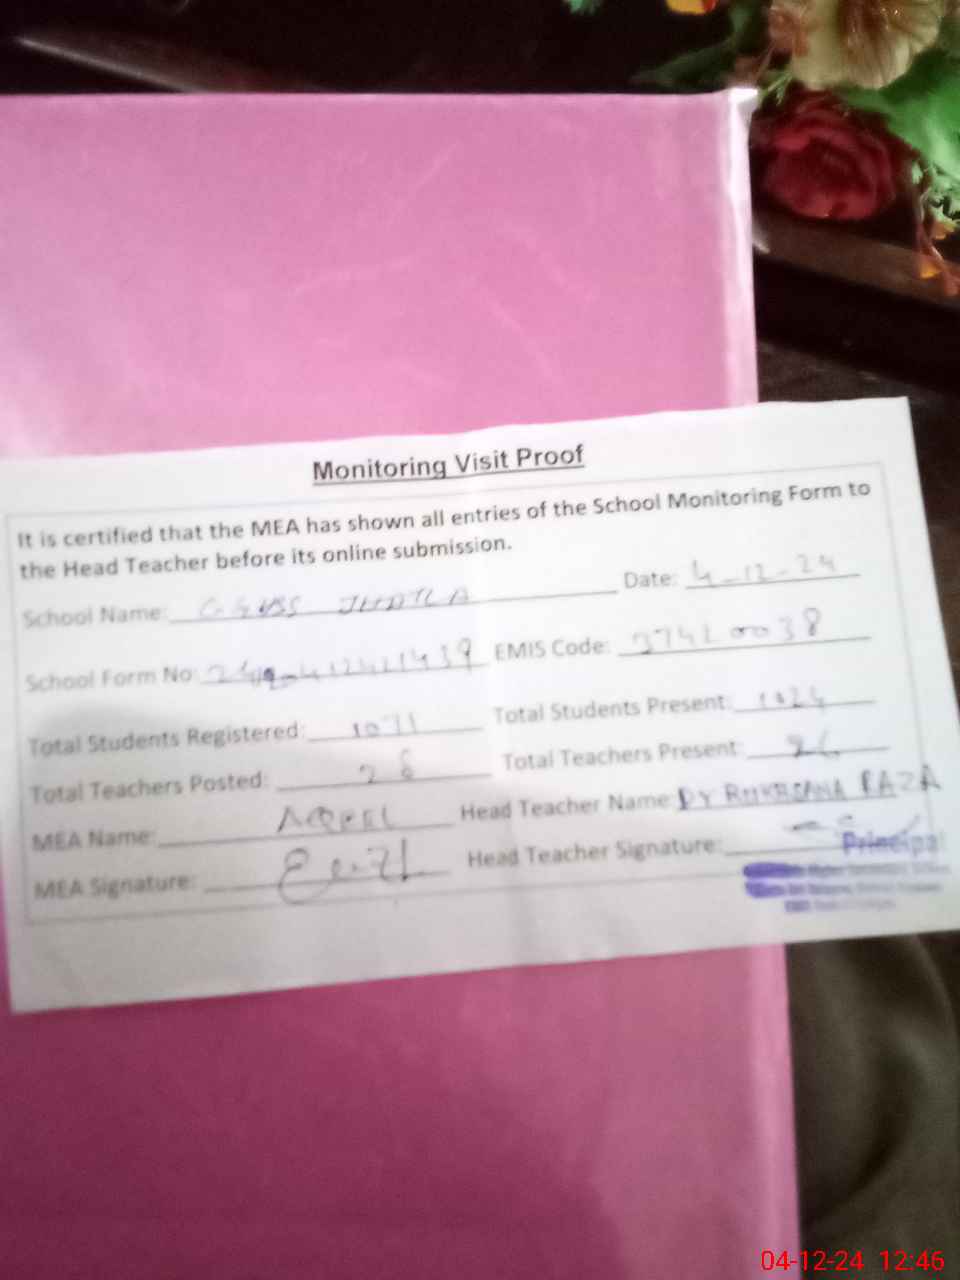 Monitoring Visit Proof
It is certified that the MEA has shown all entries of the School Monitoring Form to
the Head Teacher before its online submission.
School Name: Date: 4-12-24
School Form No: EMIS Code: 37420038
Total Students Registered: 1071 Total Students Present: 1024
Total Teachers Posted: 28 Total Teachers Present: 26
MEA Name: AQEEL Head Teacher Name: RAZA
MEA Signature: Head Teacher Signature:
Principal
04-12-24 12:46